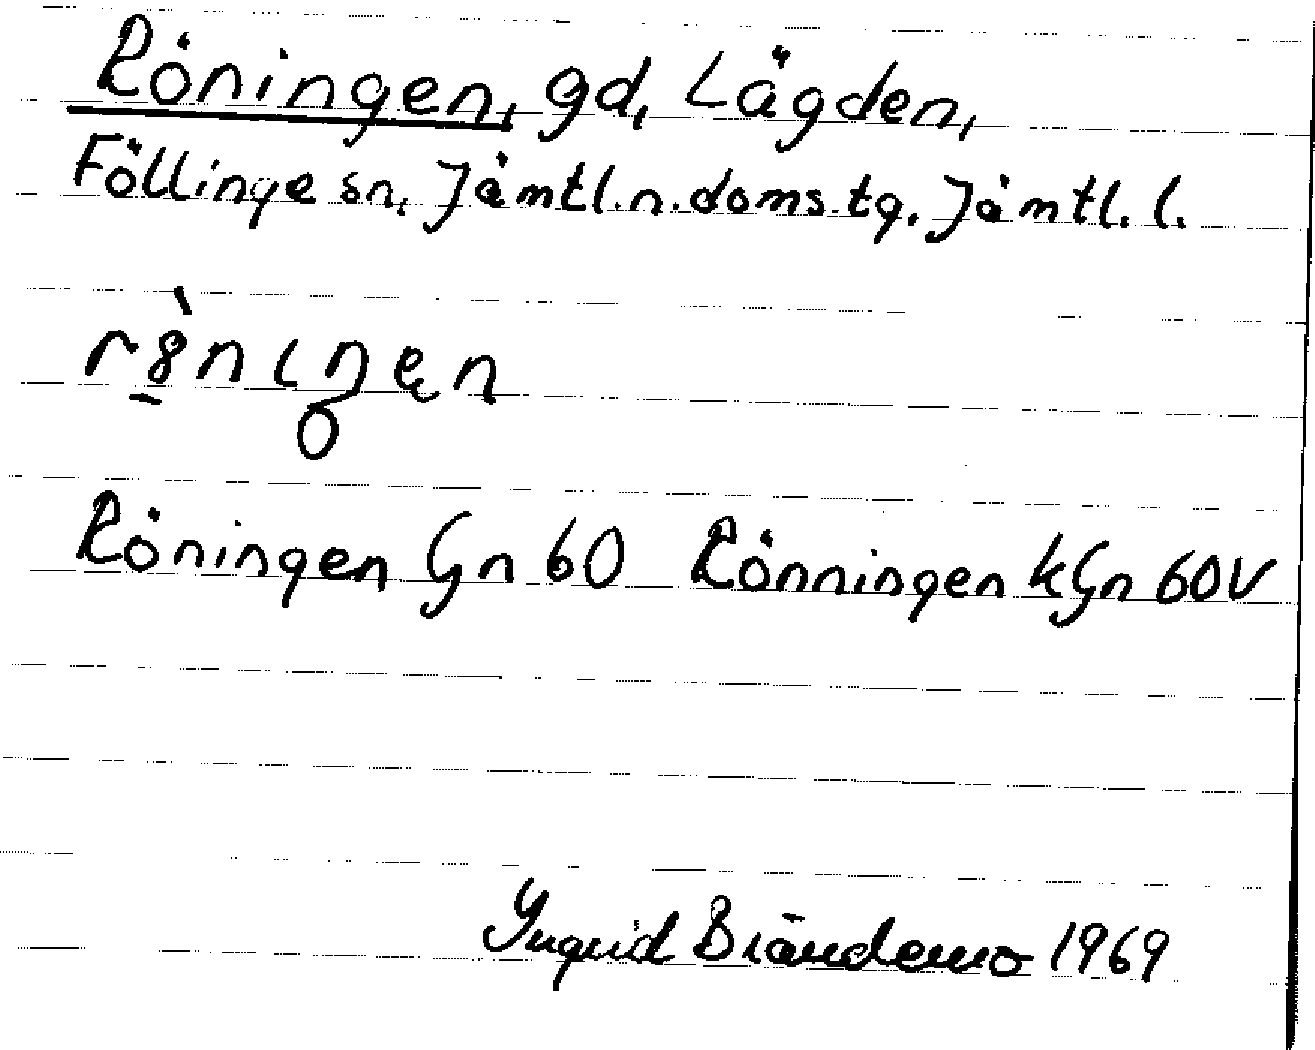 Röningen, gd, Lägden,
Föllinge sn, Jämtl.n.doms.tg. Jämtl. l.
Röningen Gn 60 Rönningen kGn 60V
Ingrid Brändemo 1969